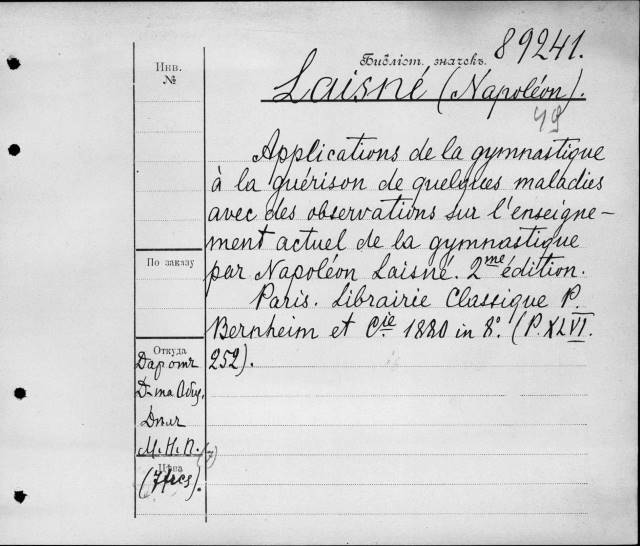 Библіот. значекъ. 89241.
Инв.
№
Laisné (Napoléon).
49
Applications de la gymnastique
à la guérison de quelques maladies
avec des observations sur l'enseigne-
ment actuel de la gymnastique
par Napoléon Laisné. 2me édition.
Paris. Librairie Classique P.
Bernheim et Cie. 1880 in 8°. (P. XLVI.
252).
По заказу
Откуда
Даръ отъ
Д-та Общ.
Дѣлъ
М. Н. П.
Цѣна
(7 frcs).